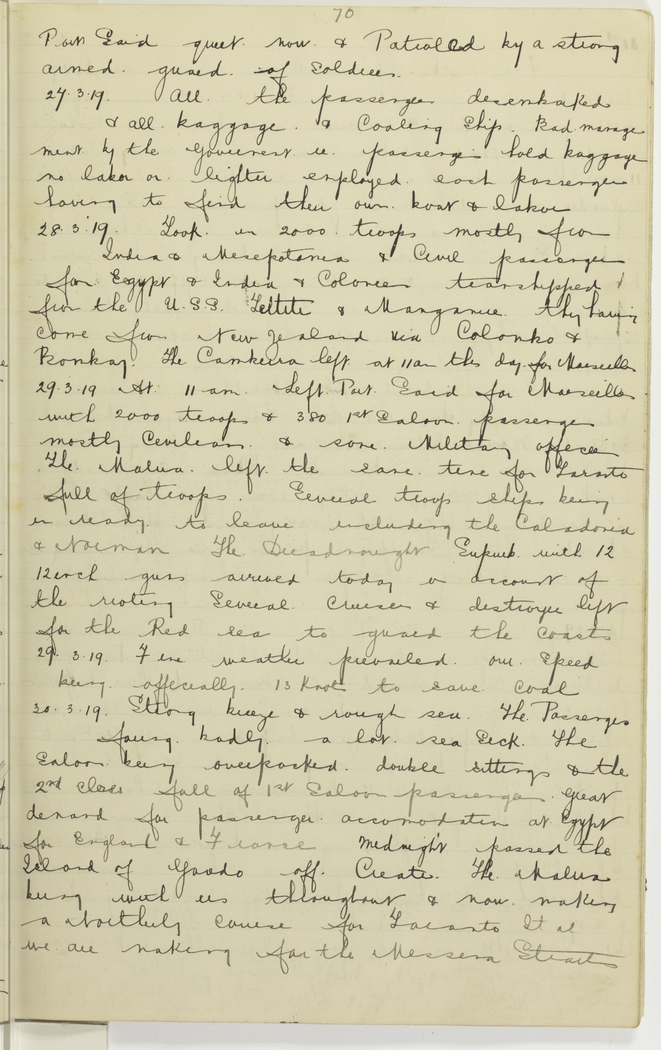 70
Port Said quiet now & Patrolled by a strong
armed guard of Soldiers.
27.3.19. All the passengers desembarked
& all baggage. & Coaling Ship. Bad manage
ment by the Goverment ie. passengers hold baggage
no labor or lighter employed each passenger
having to find their own boat & labor
28.3.19. Took in 2000 troops mostly from
India & Mesepotamia & Civil passengers
for Egypt & India & Colonies transhipped
from the U.S.S. & Manganui. they having
come from New Zealand via Colombo &
Bombay. The Cambera left at 11 am this day for Marseilles
29.3.19 At 11 am. Left Port Said for Marseilles
with 2000 troops & 380 1st Saloon passengers
mostly Civilians & some Military officers
The Malwa left the same time for Taranto
full of troops. Several troop ships being
in ready to leave including the Caladonia
& Norman The Dreadnought with 12
12 inch guns arrived today on account of
the rioting Several Cruisers & destroyers left
for the Red sea to guard the Coasts
29.3.19. Fine weather prevailed. our Speed
being officially. 13 Knots to save Coal
30.3.19. Strong breeze & rough sea. The Passengers
badly. a lot sea Sick. The
Saloon being overpacked. double sittings & the
2nd Class full of 1st Saloon passengers. great
demand for passenger accomodation at Egypt
for England & France Midnight passed the
Island of Gavdo off Create. The Malwa
being with us throughout & now making
a Northly course for Taranto
we are making for the Messena Straits